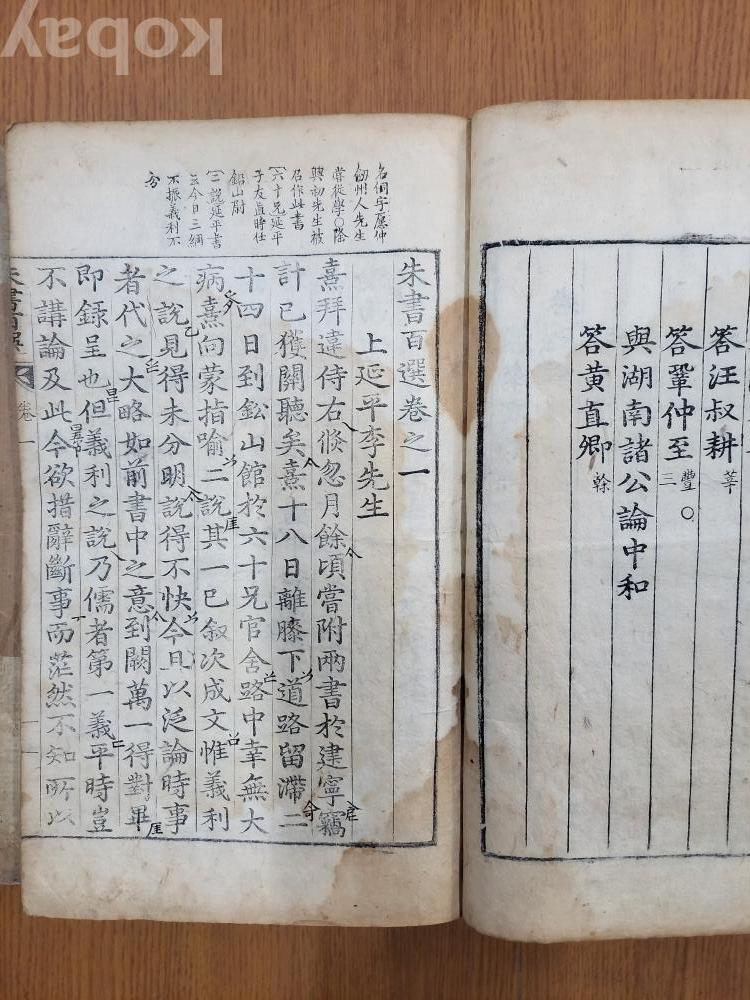 kobay
答汪叔耕 莘
答鞏仲至 豐 ○ 三
與湖南諸公論中和
答黃直卿 榦
名侗字愿仲
劒州人先生
嘗從學○隆
興初先生被
召作此書
六十兄延平
子友直時仕
鉛山尉
二說延平書
云今日三綱
不振義利不
分
朱書百選卷之一
上延平李先生
熹拜違侍右倐忽月餘頃嘗附兩書於建寧竊
計已獲關聽矣熹十八日離膝下道路留滯二
十四日到鈆山館於六十兄官舍路中幸無大
病熹向蒙指喻二說其一已叙次成文惟義利
之說見得未分明說得不快今且以泛論時事
者代之大略如前書中之意到闕萬一得對畢
即錄呈也但義利之說乃儒者第一義平時豈
不講論及此今欲措辭斷事而茫然不知所以
朱書百選
卷一